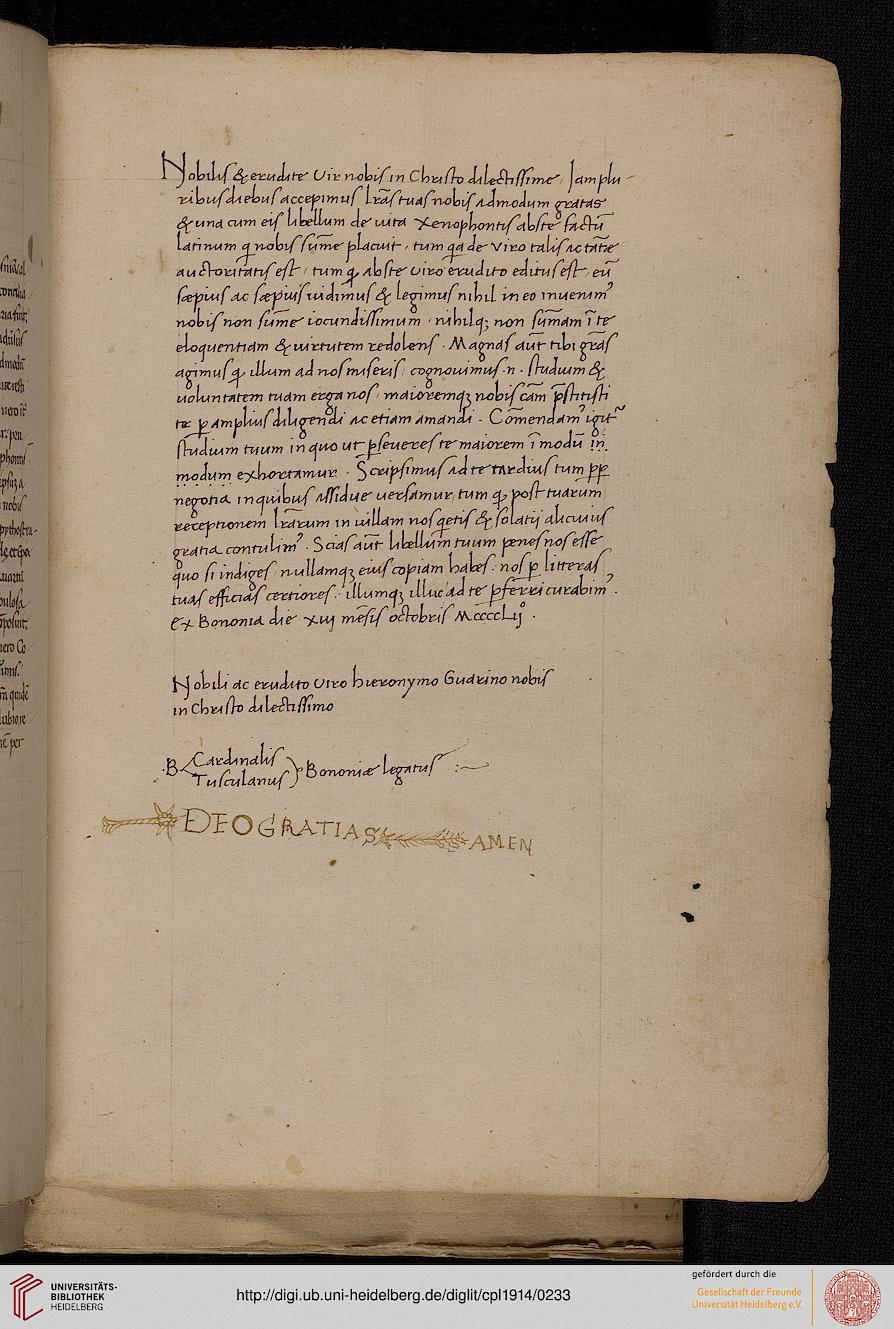 Nobilis & erudite vir nobis in Christo dilectissime. Iam plu-
ribus diebus accepimus lr̃as tuas nobis admodum gratas
& una cum eis libellum de vita Xenophontis abste factũ
latinum q nobis sũme placuit, tum qa de viro talis ac tãte
auctoritatis est, tum q abste viro erudito editus est, eũ
sæpius ac sæpius vidimus & legimus nihil in eo invenimꝰ
nobis non sũme iocundissimum, nihilqꝫ non sũmam ĩ te
eloquentiam & virtutem redolens. Magnas aũt tibi gr̃as
agimus q illum ad nos miseris, cognovimus .n. studium &
voluntatem tuam erga nos, maioremqꝫ nobis cãm p̃stitisti
te ꝑ amplius diligendi ac etiam amandi. Cõmendamꝰ igit᷑
studium tuum in quo ut ꝑseveres te maiorem ĩ modũ in
modum exhortamur. Scripsimus ad te tardius tum ꝓꝑ
negotia in quibus assidue versamur, tum q post tuarum
receptionem lr̃arum in villam nos qetis & solatij alicuius
gratia contulimꝰ. Scias aũt libellum tuum penes nos esse
quo si indiges, nullamqꝫ eius copiam habes, nos ꝑ litteras
tuas efficias certiores, illumqꝫ illuc ad te ꝑferri curabimꝰ.
Ex Bononia die xvij mẽsis octobris MccccLijº.
Nobili ac erudito viro hieronymo Guarino nobis
in Christo dilectissimo
.B. Cardinalis
Tusculanus
Bononiæ legatus
DEO GRATIAS AMEN
UNIVERSITÄTS-
BIBLIOTHEK
HEIDELBERG
http://digi.ub.uni-heidelberg.de/diglit/cpl1914/0233
gefördert durch die
Gesellschaft der Freunde
Universität Heidelberg e.V.